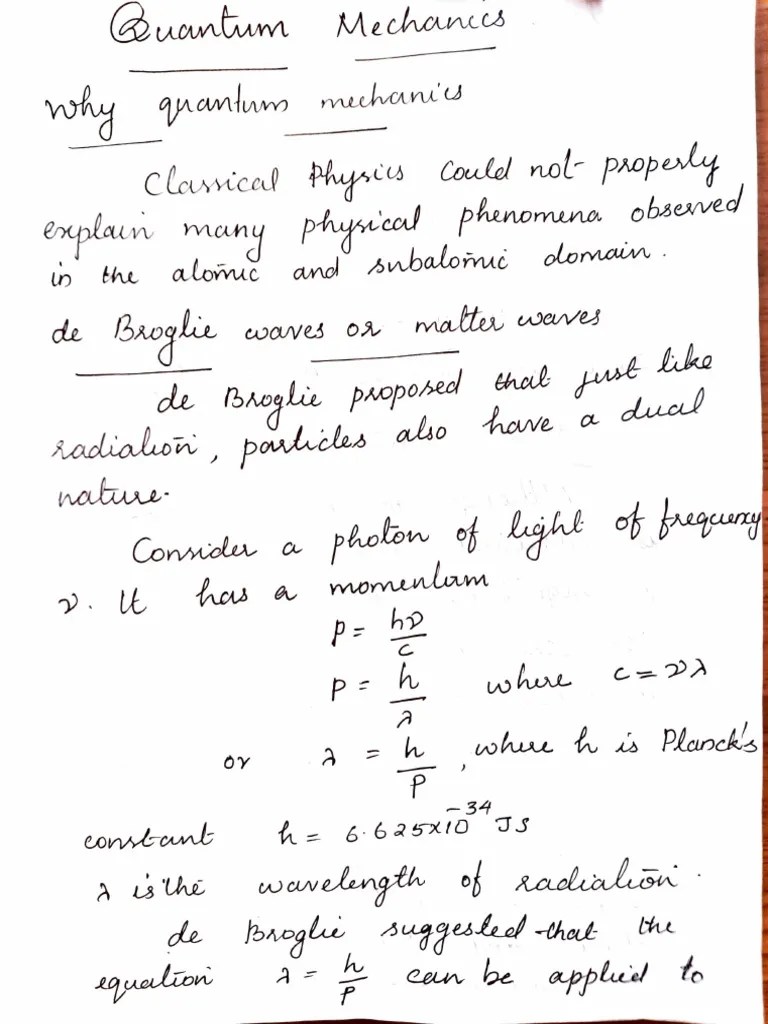 Quantum Mechanics
Why quantum mechanics
Classical Physics could not properly
explain many physical phenomena observed
in the atomic and subatomic domain.
de Broglie waves or matter waves
de Broglie proposed that just like
radiation, particles also have a dual
nature.
Consider a photon of light of frequency
ν. It has a momentum
P = hν/c
P = h/λ where c = νλ
or λ = h/P, where h is Planck's
constant h = 6.625x10⁻³⁴ JS
λ is the wavelength of radiation.
de Broglie suggested that the
equation λ = h/P can be applied to